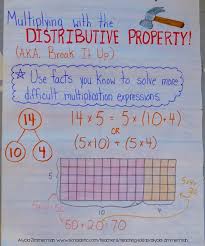 Multiplying with the
DISTRIBUTIVE PROPERTY!
(A.K.A. Break It Up)
Use facts you know to solve more
difficult multiplication expressions.
14
10 4
14 x 5 = 5 x (10+4)
OR
(5x10) + (5x4)
5
50+20=70
Alycia Zimmerman www.scholastic.com/teachers/teaching-ideas/alycia-zimmerman